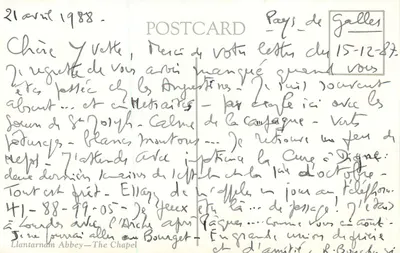 21 avril 1988.
POSTCARD
Pays de Galles
Chère Yvette, Merci de votre lettre du 15-12-87.
Je regrette de vous avoir manqué quand vous
êtes passée chez les Argentières. Je suis souvent
absent... et en Retraites - par exemple ici avec les
Soeurs de St Joseph - Calme de la campagne - Verts
pâturages - blancs moutons... Je retrouve un peu de
J'attends avec la Cure à Digne:
deux dernières semaines de septembre et la 1ère d'octobre -
Tout est prêt - Essayez de m'appeler un jour au téléphone.
41-88-99-05 - Je peux être là... de passage! J'étais
à Lourdes avec l'Arche après Pâques... comme vous en août.
Je ne pourrai aller au Bourget - En grande union de prière
Llantarnam Abbey—The Chapel
et d'amitié,